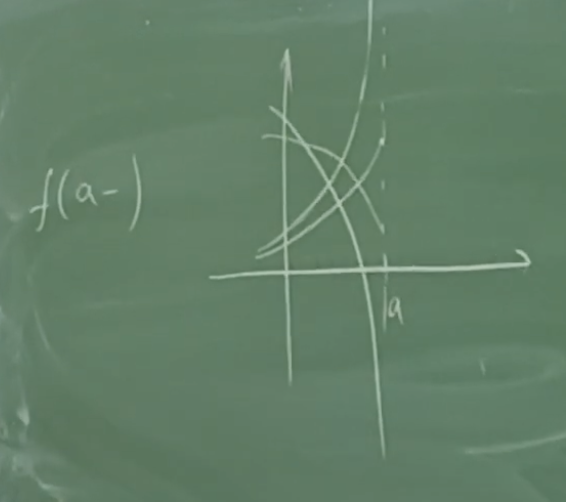 f(a-)
a